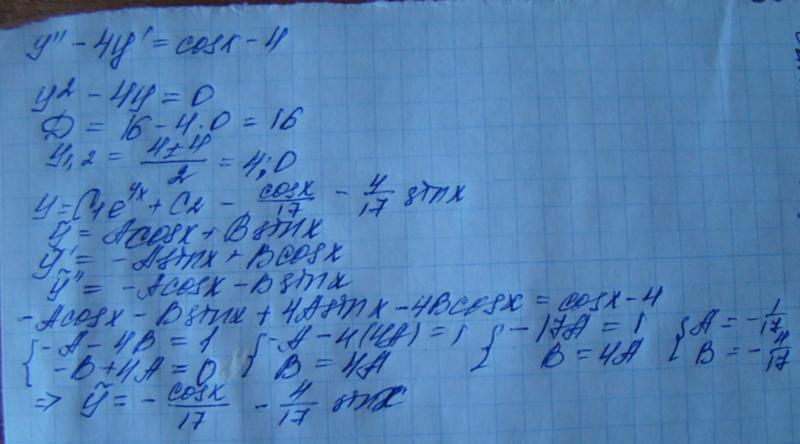 y'' - 4y' = cosx - 4
y² - 4y = 0
D = 16 - 4·0 = 16
y₁,₂ = (4±4)/2 = 4; 0
y = C₁e^{4x} + C₂ - cosx/17 - 4/17 sinx
ỹ = Acosx + Bsinx
ỹ' = -Asinx + Bcosx
ỹ'' = -Acosx - Bsinx
-Acosx - Bsinx + 4Asinx - 4Bcosx = cosx - 4
{ -A - 4B = 1 { -A - 4(4A) = 1 { -17A = 1 { A = -1/17
-B + 4A = 0 B = 4A B = 4A B = -4/17
=> ỹ = - cosx/17 - 4/17 sinx